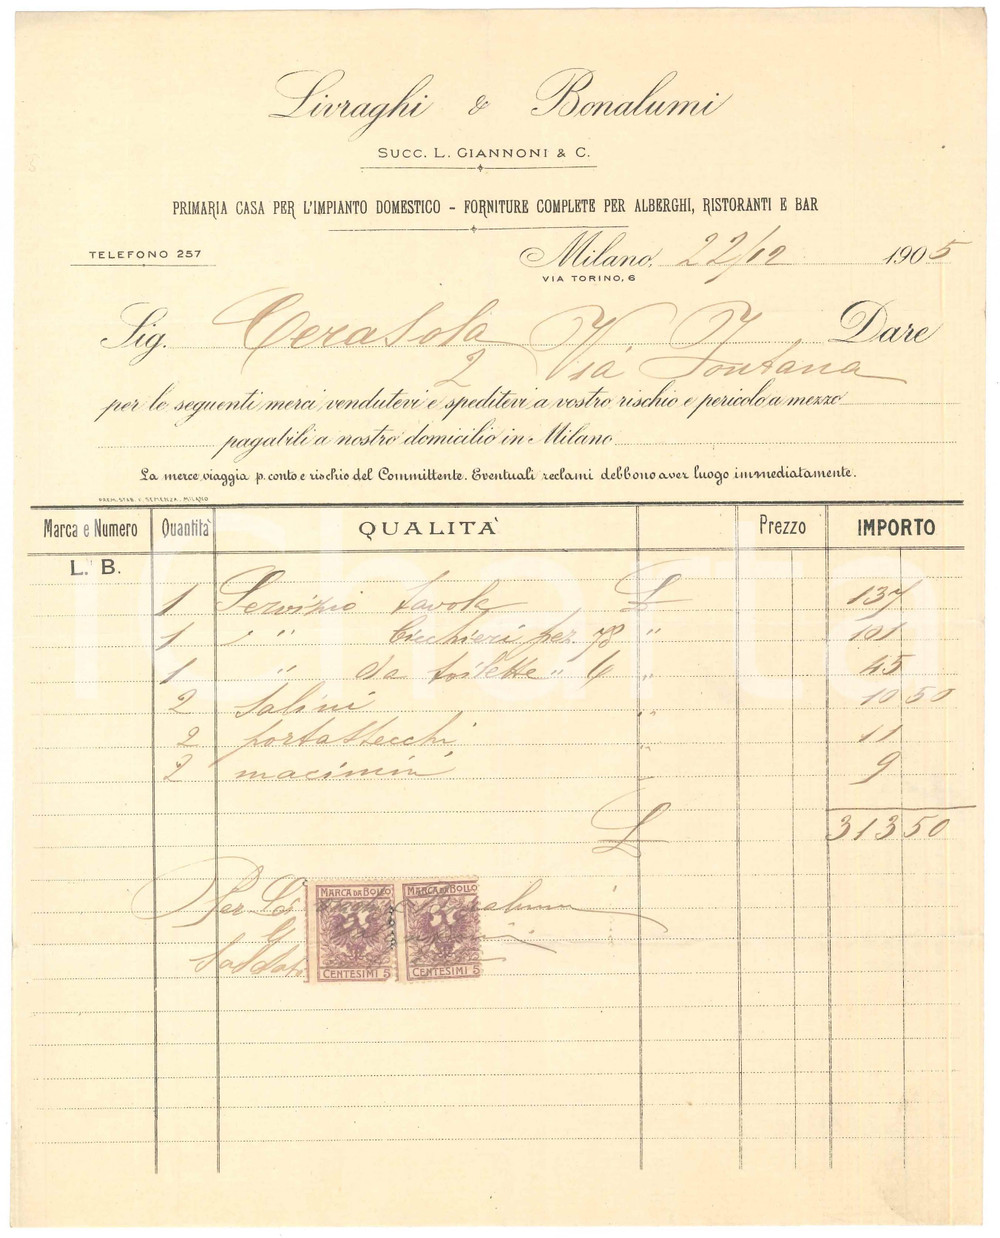 Livraghi & Bonalumi
SUCC. L. GIANNONI & C.
PRIMARIA CASA PER L'IMPIANTO DOMESTICO – FORNITURE COMPLETE PER ALBERGHI, RISTORANTI E BAR
TELEFONO 257
Milano, 22/12 1905
VIA TORINO, 6
Sig. Cerasola Dare
2 Via Fontana
per le seguenti merci vendutevi e speditevi a vostro rischio e pericolo a mezzo
pagabili a nostro domicilio in Milano
La merce viaggia p. conto e rischio del Committente. Eventuali reclami debbono aver luogo immediatamente.
Marca e Numero Quantità QUALITA' Prezzo IMPORTO
L. B.
1 Servizio tavola £ 137
1 " " bicchieri per 78 " 101
1 " da toilette " 6 " 45
2 Salini " 10 50
2 portastecchi " 11
2 macinini " 9
£ 313 50
Per La Bonalumi
MARCA DA BOLLO MARCA DA BOLLO
Saldato
CENTESIMI 5 CENTESIMI 5